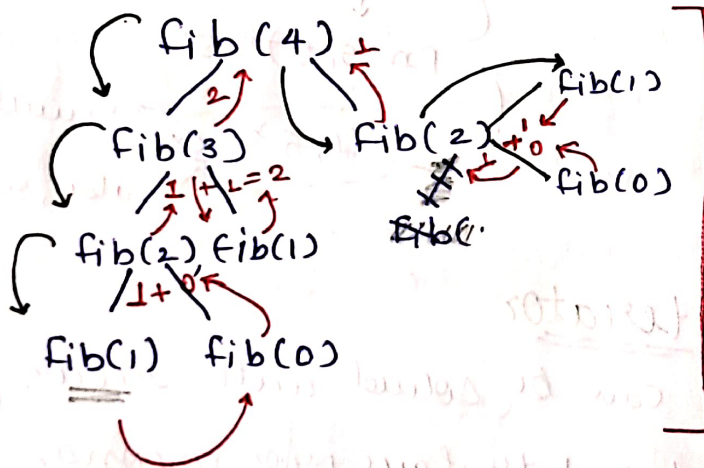 fib(4) 1
2
fib(1)
fib(3) fib(2) 1 + 0
1 + 1 = 2 1
fib(0)
fib(2) fib(1)
1 + 0
fib(1) fib(0)